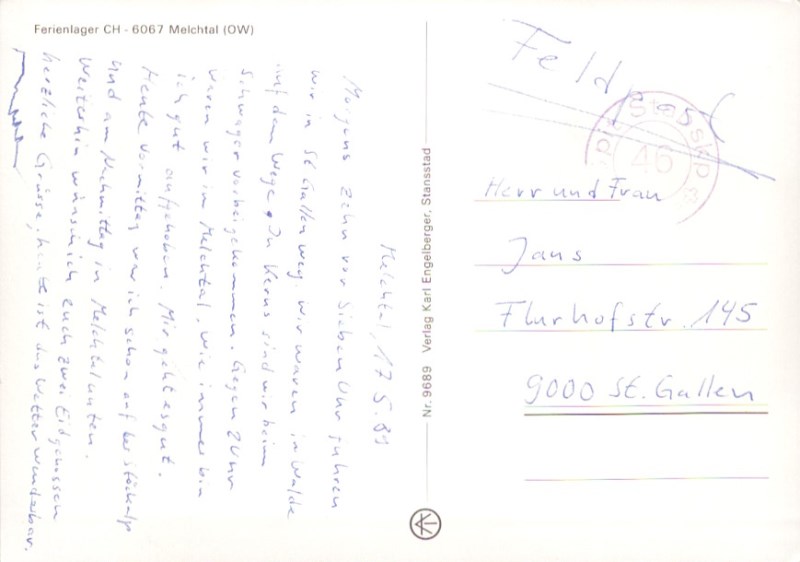 Ferienlager CH - 6067 Melchtal (OW)
Melchtal, 17.5.89
Morgens zehn vor Sieben Uhr fuhren
wir in St. Gallen weg. Wir waren in Walde
auf dem Wege. In Kerns sind wir beim
Schwager vorbeigekommen. Gegen 2 Uhr
waren wir im Melchtal. Wie immer bin
ich gut aufgehoben. Mir geht es gut.
Heute Vormittag war ich schon auf der Stöckalp
und am Nachmittag in Melchtal unten.
Weiterhin wünsch ich euch zwei Eidgenossen
herzliche Grüsse, heute ist das Wetter wunderbar.
Nr. 9689 Verlag Karl Engelberger, Stansstad
Feldpost
Stansstad
46
Herr und Frau
Jans
Flurhofstr. 145
9000 St. Gallen